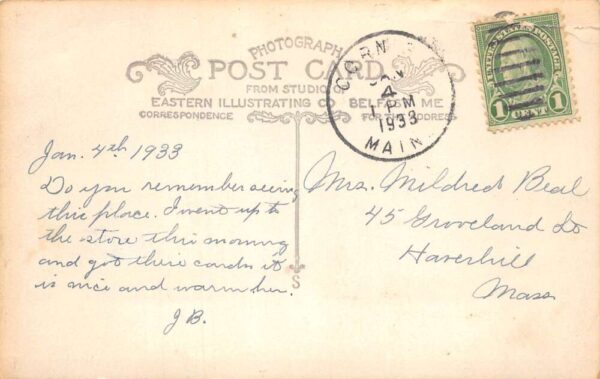 PHOTOGRAPH
POST CARD
FROM STUDIO OF
EASTERN ILLUSTRATING CO BELFAST ME
CORRESPONDENCE
FOR THE ADDRESS
CORN
JAN
4
1 PM
1933
MAIN
UNITED STATES POSTAGE
1 CENT 1
Jan. 4th 1933
Do you remember seeing
this place. I went up to
the store this morning
and got these cards it
is nice and warm here.
J.B.
Mrs. Mildred Beal
45 Groveland St
Haverhill
Mass
S